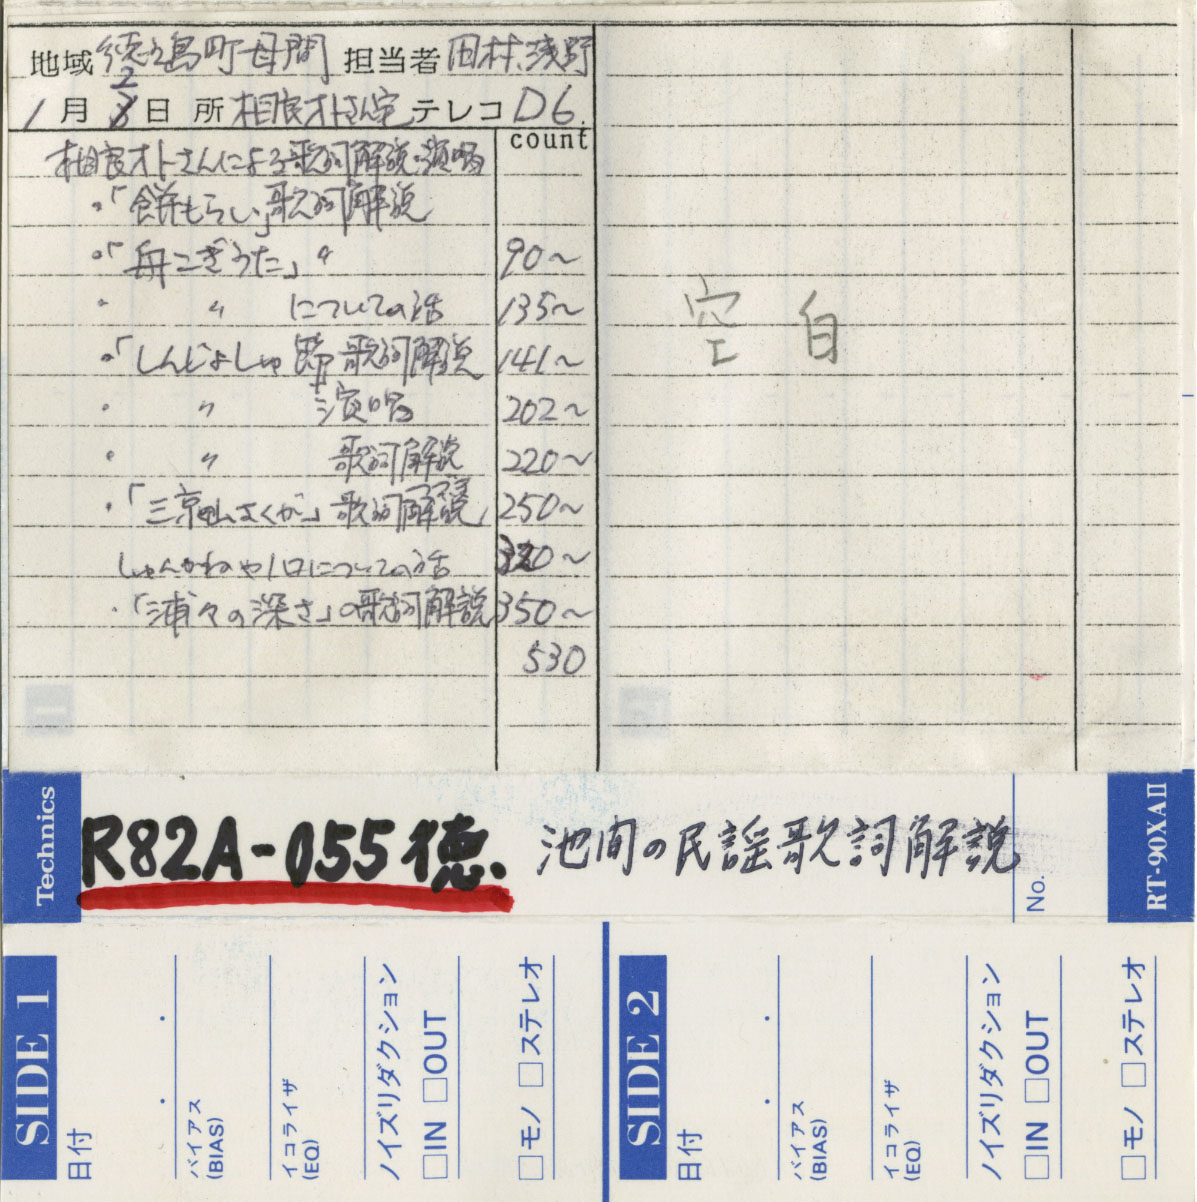 地域 徳之島町母間 担当者 田村、浅野
1月 2日 所 相良オトさん宅 テレコ D6.
count
相良オトさんによる歌詞解説・演唱
・「餅もらい」歌詞解説
・「舟こぎうた」〃 90～
・ 〃 についての話 135～
・「しんじょしゅ節 歌詞解説 141～
・ 〃 演唱 202～
・ 〃 歌詞解説 220～
・「三京山さくが」歌詞解説 250～
についての話
・「浦々の深さ」の歌詞解説 350～
530
空白
Technics
R82A-055 徳.
池間の民謡歌詞解説
No.
RT-90XAII
SIDE 1
日付
・ ・
バイアス
(BIAS)
イコライザ
(EQ)
ノイズリダクション
□IN □OUT
□モノ □ステレオ
SIDE 2
日付
・ ・
バイアス
(BIAS)
イコライザ
(EQ)
ノイズリダクション
□IN □OUT
□モノ □ステレオ